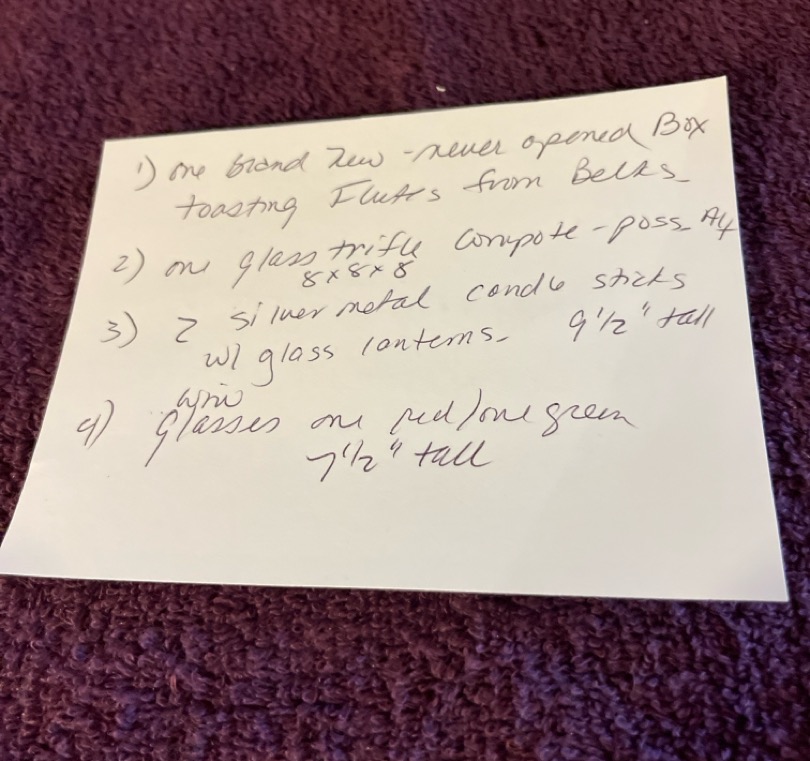 1) one brand new - never opened Box
toasting Flutes from Belks
2) one glass trifle compote - poss
8x8x8
3) 2 silver metal candle sticks
w/ glass lanterns. 9 1/2" tall
wine
4) glasses one red/one green
7 1/2" tall